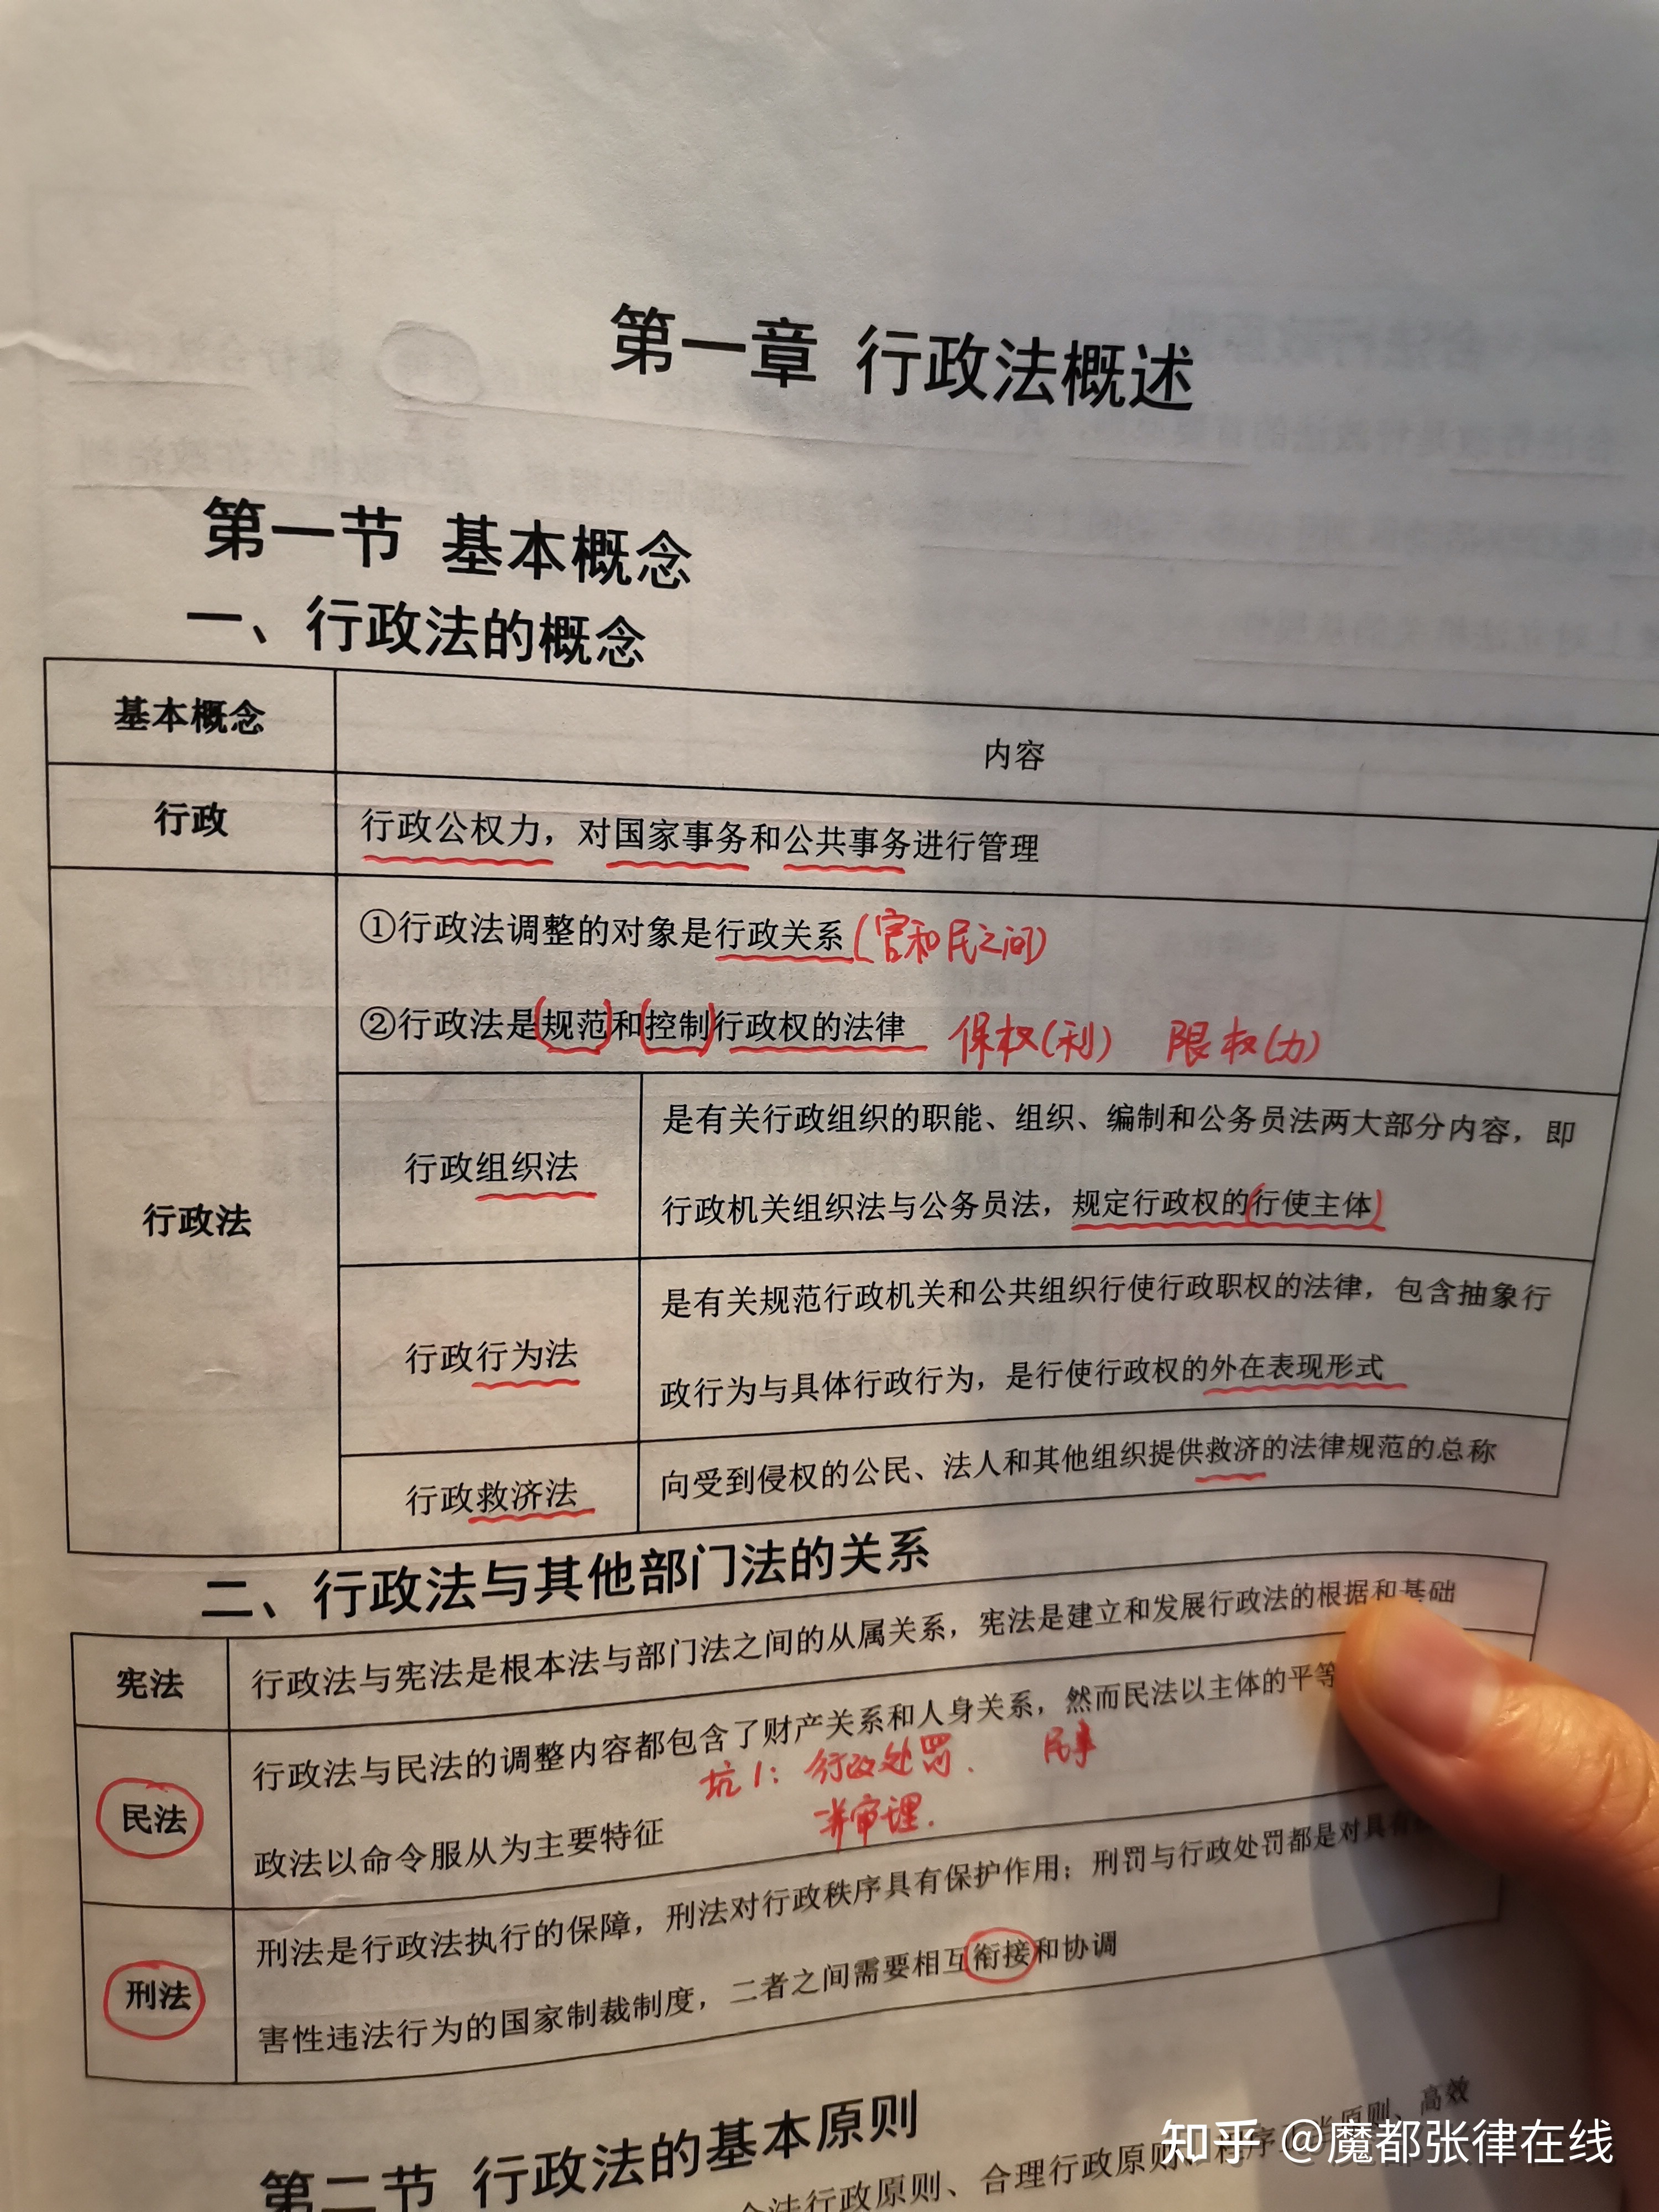 第一章 行政法概述
第一节 基本概念
一、行政法的概念
基本概念
内容
行政
行政公权力，对国家事务和公共事务进行管理
行政法
①行政法调整的对象是行政关系(官和民之间)
②行政法是(规范)和(控制)行政权的法律 保权(利) 限权(力)
行政组织法
是有关行政组织的职能、组织、编制和公务员法两大部分内容，即
行政机关组织法与公务员法，规定行政权的(行使主体)
行政行为法
是有关规范行政机关和公共组织行使行政职权的法律，包含抽象行
政行为与具体行政行为，是行使行政权的外在表现形式
行政救济法
向受到侵权的公民、法人和其他组织提供救济的法律规范的总称
二、行政法与其他部门法的关系
宪法
行政法与宪法是根本法与部门法之间的从属关系，宪法是建立和发展行政法的根据和基础
民法
行政法与民法的调整内容都包含了财产关系和人身关系，然而民法以主体的平等
坑1：行政处罚、 民事
政法以命令服从为主要特征
并审理.
刑法
刑法是行政法执行的保障，刑法对行政秩序具有保护作用；刑罚与行政处罚都是对具有
害性违法行为的国家制裁制度，二者之间需要相互衔接和协调
第二节 行政法的基本原则
合法行政原则、合理行政原则、程序正当原则、高效
知乎 @魔都张律在线